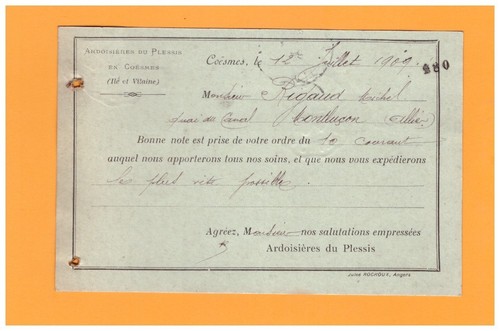 ARDOISIÈRES DU PLESSIS
EN COËSMES
(Ille et Vilaine)
Coësmes, le 12 Juillet 1900
280
Monsieur Rigaud Michel
Quai du Canal Montluçon (Allier)
Bonne note est prise de votre ordre du 10 courant
auquel nous apporterons tous nos soins, et que nous vous expédierons
le plus vite possible
Agréez, Monsieur nos salutations empressées
Ardoisières du Plessis
ROCHOUX, Angers